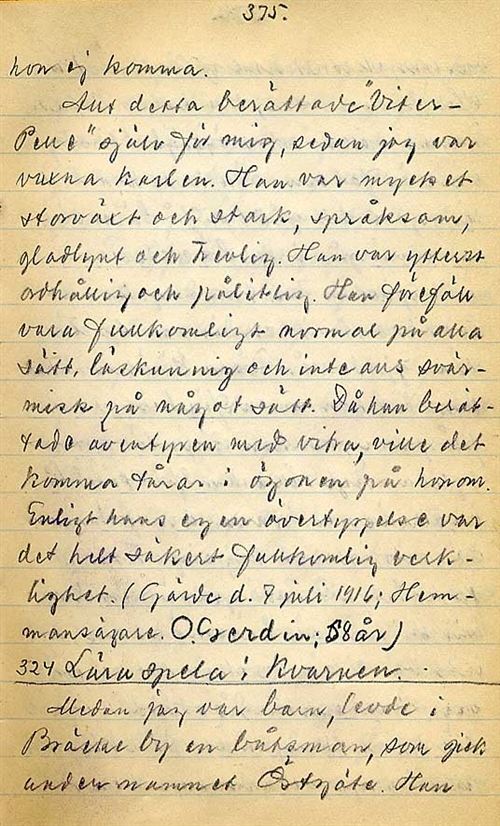 375.
hon ej komma.
Allt detta berättade "Viter-
Pelle" själv för mig, sedan jag var
vuxna karlen. Han var mycket
storväxt och stark, språksam,
gladlynt och trevlig. Han var ytterst
ordhållig och pålitlig. Han föreföll
vara fullkomligt normal på alla
sätt, läskunnig och inte alls svär-
misk på något sätt. Då han berät-
tade äventyren med vitra, ville det
komma tårar i ögonen på honom.
Enligt hans egen övertygelse var
det helt säkert fullkomlig verk-
lighet. (Gärde d. 7 juli 1916; Hem-
mansägare. O. Gerdin; 58 år)
324 Lära spela i kvarnen.
Medan jag var barn, levde i
Bräcke by en båtsman, som gick
under namnet Östgöte. Han